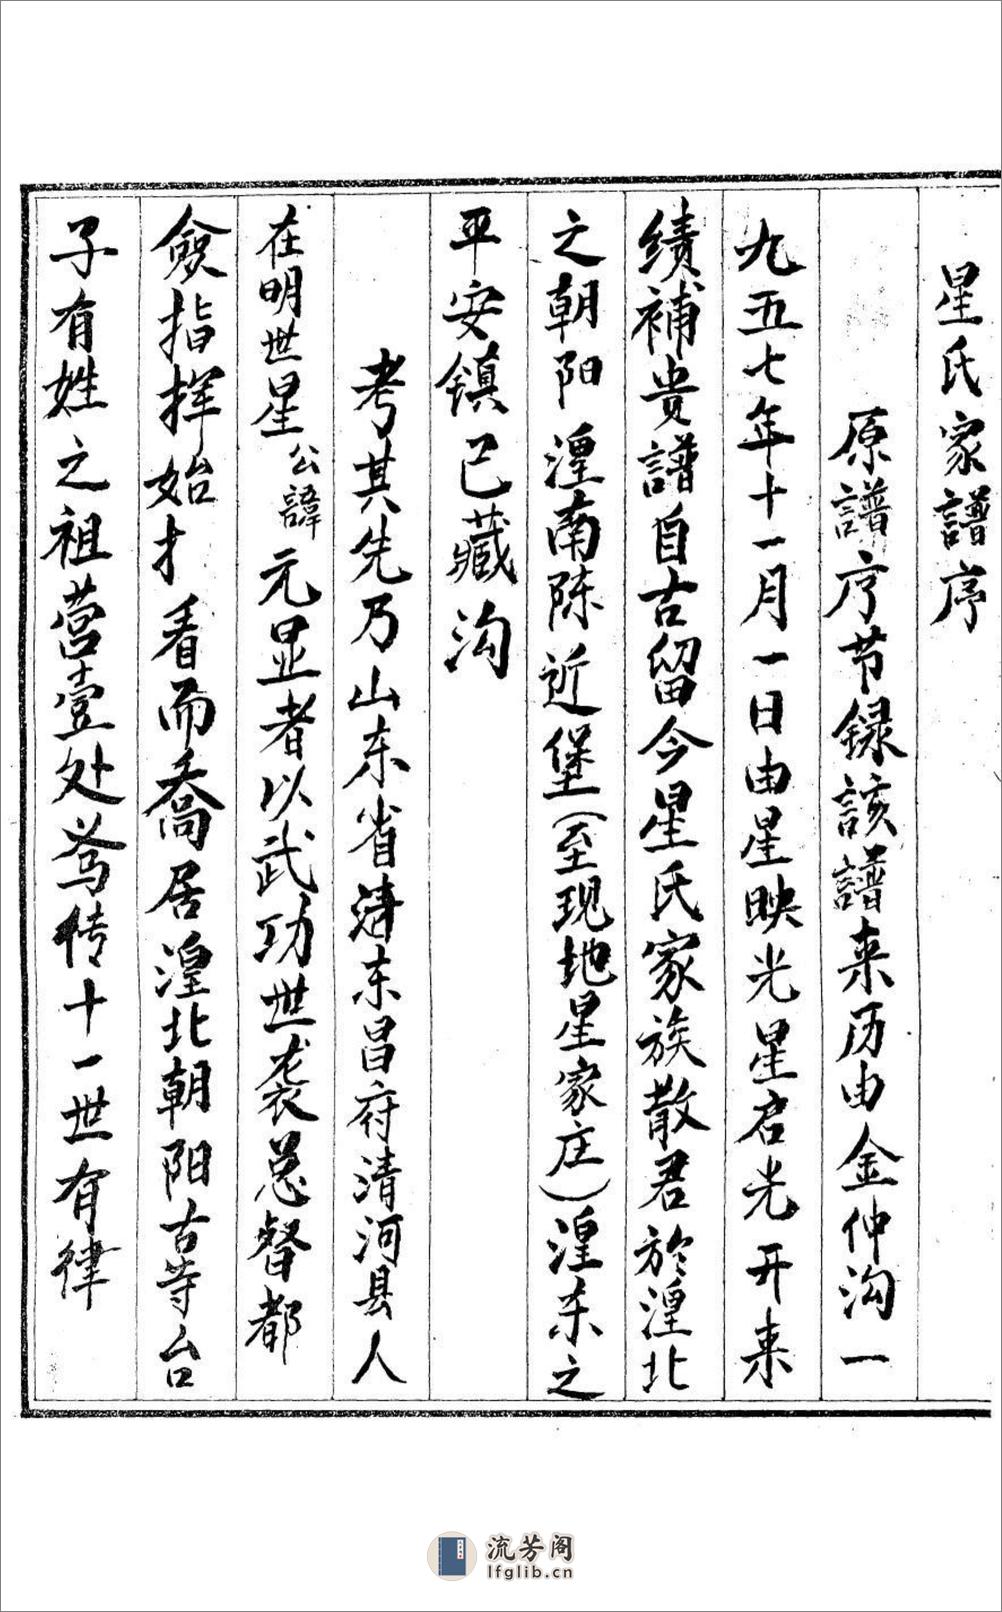 星氏家譜序
原譜序节録該譜来历由金仲沟一
九五七年十一月一日由星映光星启光开来
绩補贵譜自古留今星氏家族散君於湟北
之朝阳湟南陈近堡(至现地星家庄)湟东之
平安镇已藏沟
考其先乃山东省清东昌府清河县人
在明世星公諱元显者以武功世袭总督都
佥指挥始才看而喬居湟北朝阳古寺台
子有姓之祖营壹处焉传十一世有律
流芳阁
lfglib.cn